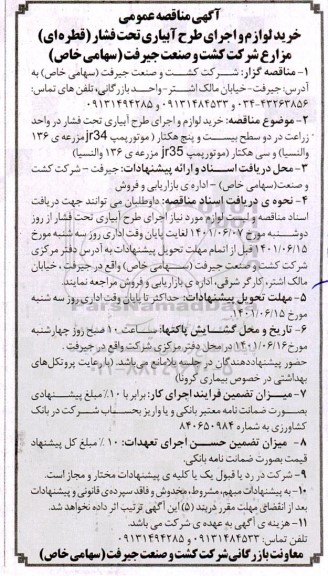 آگهی مناقصه عمومی
خرید لوازم و اجرای طرح آبیاری تحت فشار (قطره ای)
مزارع شرکت کشت و صنعت جیرفت (سهامی خاص)
۱- مناقصه گزار: شرکت کشت و صنعت جیرفت (سهامی خاص) به
آدرس: جیرفت- خیابان مالک اشتر- واحد بازرگانی، تلفن های تماس:
۰۳۴-۴۳۲۶۳۸۵۶ و ۰۹۱۳۱۴۸۴۵۳۳ و ۰۹۱۳۱۴۹۴۲۸۵
۲- موضوع مناقصه: خرید لوازم و اجرای طرح آبیاری تحت فشار در واحد
زراعت در دو سطح بیست و پنج هکتار (موتور پمپ jr34 مزرعه ی ۱۳۶
والنسیا) و سی هکتار (موتور پمپ jr35 مزرعه ی ۱۳۶ والنسیا)
۳- محل دریافت اسناد و ارائه پیشنهادات: جیرفت - شرکت کشت
و صنعت (سهامی خاص) - اداره ی بازاریابی و فروش
۴- نحوه ی دریافت اسناد مناقصه: داوطلبان می توانند جهت دریافت
اسناد مناقصه و لیست لوازم مورد نیاز اجرای طرح آبیاری تحت فشار از روز
دوشنبه مورخ ۱۴۰۱/۰۶/۰۷ لغایت پایان وقت اداری روز سه شنبه مورخ
۱۴۰۱/۰۶/۱۵ قبل از اتمام مهلت تحویل پیشنهادات به آدرس دفتر مرکزی
شرکت کشت و صنعت جیرفت (سهامی خاص) واقع در جیرفت، خیابان
مالک اشتر، کارگر شرقی، اداره ی بازاریابی و فروش مراجعه نمایند.
۵- مهلت تحویل پیشنهادات: حداکثر تا پایان وقت اداری روز سه شنبه
مورخ ۱۴۰۱/۰۶/۱۵.
۶- تاریخ و محل گشایش پاکتها: ساعت ۱۰ صبح روز چهارشنبه
مورخ ۱۴۰۱/۰۶/۱۶ در محل دفتر مرکزی شرکت واقع در جیرفت.
حضور پیشنهاددهندگان در جلسه بلامانع می باشد. (با رعایت پروتکل های
بهداشتی در خصوص بیماری کرونا)
۷- میزان تضمین فرایند اجرای کار: برابر با ۱۰٪ مبلغ پیشنهادی
بصورت ضمانت نامه معتبر بانکی و یا واریز بحساب شرکت در بانک
کشاورزی به شماره ۸۴۰۶۵۰۹۸۴
۸- میزان تضمین حسن اجرای تعهدات: ۱۰٪ مبلغ کل پیشنهاد
قیمت بصورت ضمانت نامه بانکی.
۹- شرکت در رد یا قبول یک یا کلیه ی پیشنهادات مختار و مجاز است.
۱۰- به پیشنهادات مبهم، مشروط، مخدوش و فاقد سپرده ی قانونی و پیشنهادات
بعد از انقضای مهلت مقرر در بند (۵) این آگهی ترتیب اثر داده نخواهد شد.
۱۱- هزینه ی آگهی به عهده ی شرکت می باشد.
تلفن تماس: ۰۹۱۳۱۴۸۴۵۳۳ و ۰۹۱۳۱۴۹۴۲۸۵
معاونت بازرگانی شرکت کشت و صنعت جیرفت (سهامی خاص)